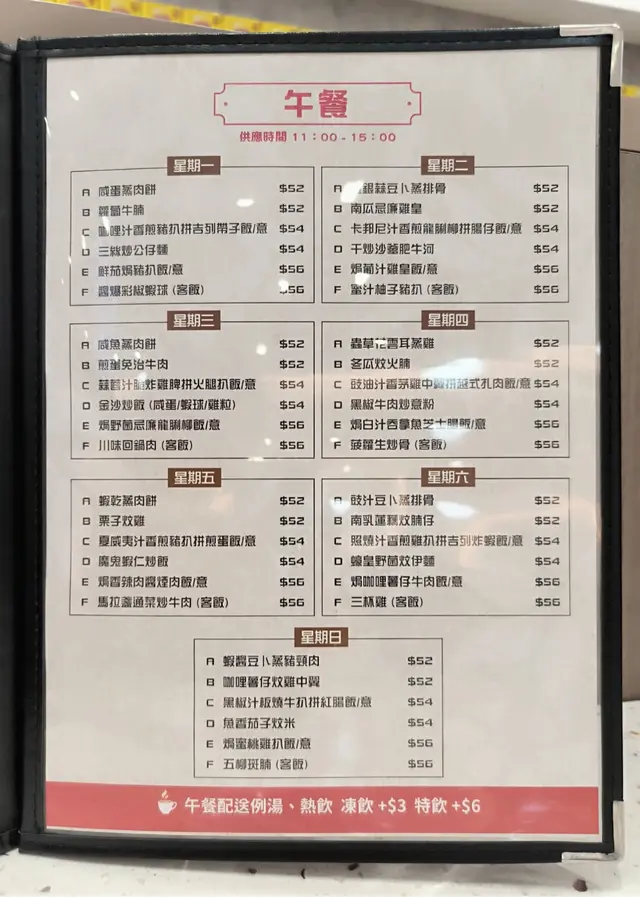 午餐
供應時間 11:00-15:00
星期一
A 咸蛋蒸肉餅 $52
B 蘿蔔牛腩 $52
C 咖哩汁香煎豬扒拼吉列帶子飯/意 $54
D 三絲炒公仔麵 $54
E 鮮茄焗豬扒飯/意 $56
F 醬爆彩椒蝦球 (客飯) $56
星期二
A 銀蒜豆卜蒸排骨 $52
B 南瓜忌廉雞皇 $52
C 卡邦尼汁香煎龍脷柳拼腸仔飯/意 $54
D 干炒沙爹肥牛河 $54
E 焗葡汁雞皇飯/意 $56
F 蜜汁柚子豬扒 (客飯) $56
星期三
A 咸魚蒸肉餅 $52
B 煎蛋免治牛肉 $52
C 蒜蓉汁脆炸雞脾拼火腿扒飯/意 $54
D 金沙炒飯 (咸蛋/蝦球/雞粒) $54
E 焗野菌忌廉龍脷柳飯/意 $56
F 川味回鍋肉 (客飯) $56
星期四
A 蟲草花雲耳蒸雞 $52
B 冬瓜炆火腩 $52
C 豉油汁香茅雞中翼拼越式扎肉飯/意 $54
D 黑椒牛肉炒意粉 $54
E 焗白汁吞拿魚芝士腸飯/意 $56
F 菠蘿生炒骨 (客飯) $56
星期五
A 蝦乾蒸肉餅 $52
B 栗子炆雞 $52
C 夏威夷汁香煎豬扒拼煎蛋飯/意 $54
D 魔鬼蝦仁炒飯 $54
E 焗香辣肉醬煙肉飯/意 $56
F 馬拉盞通菜炒牛肉 (客飯) $56
星期六
A 豉汁豆卜蒸排骨 $52
B 南乳蓮藕炆腩仔 $52
C 照燒汁香煎雞扒拼吉列炸蝦飯/意 $54
D 蠔皇野菌炆伊麵 $54
E 焗咖哩薯仔牛肉飯/意 $56
F 三杯雞 (客飯) $56
星期日
A 蝦醬豆卜蒸豬頸肉 $52
B 咖哩薯仔炆雞中翼 $52
C 黑椒汁板燒牛扒拼紅腸飯/意 $54
D 魚香茄子炆米 $54
E 焗蜜桃雞扒飯/意 $56
F 五柳斑腩 (客飯) $56
午餐配送例湯、熱飲 凍飲+$3 特飲+$6